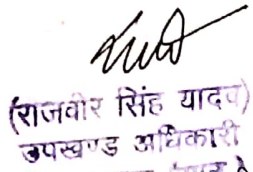 (राजवीर सिंह यादव)
उपखण्ड अधिकारी